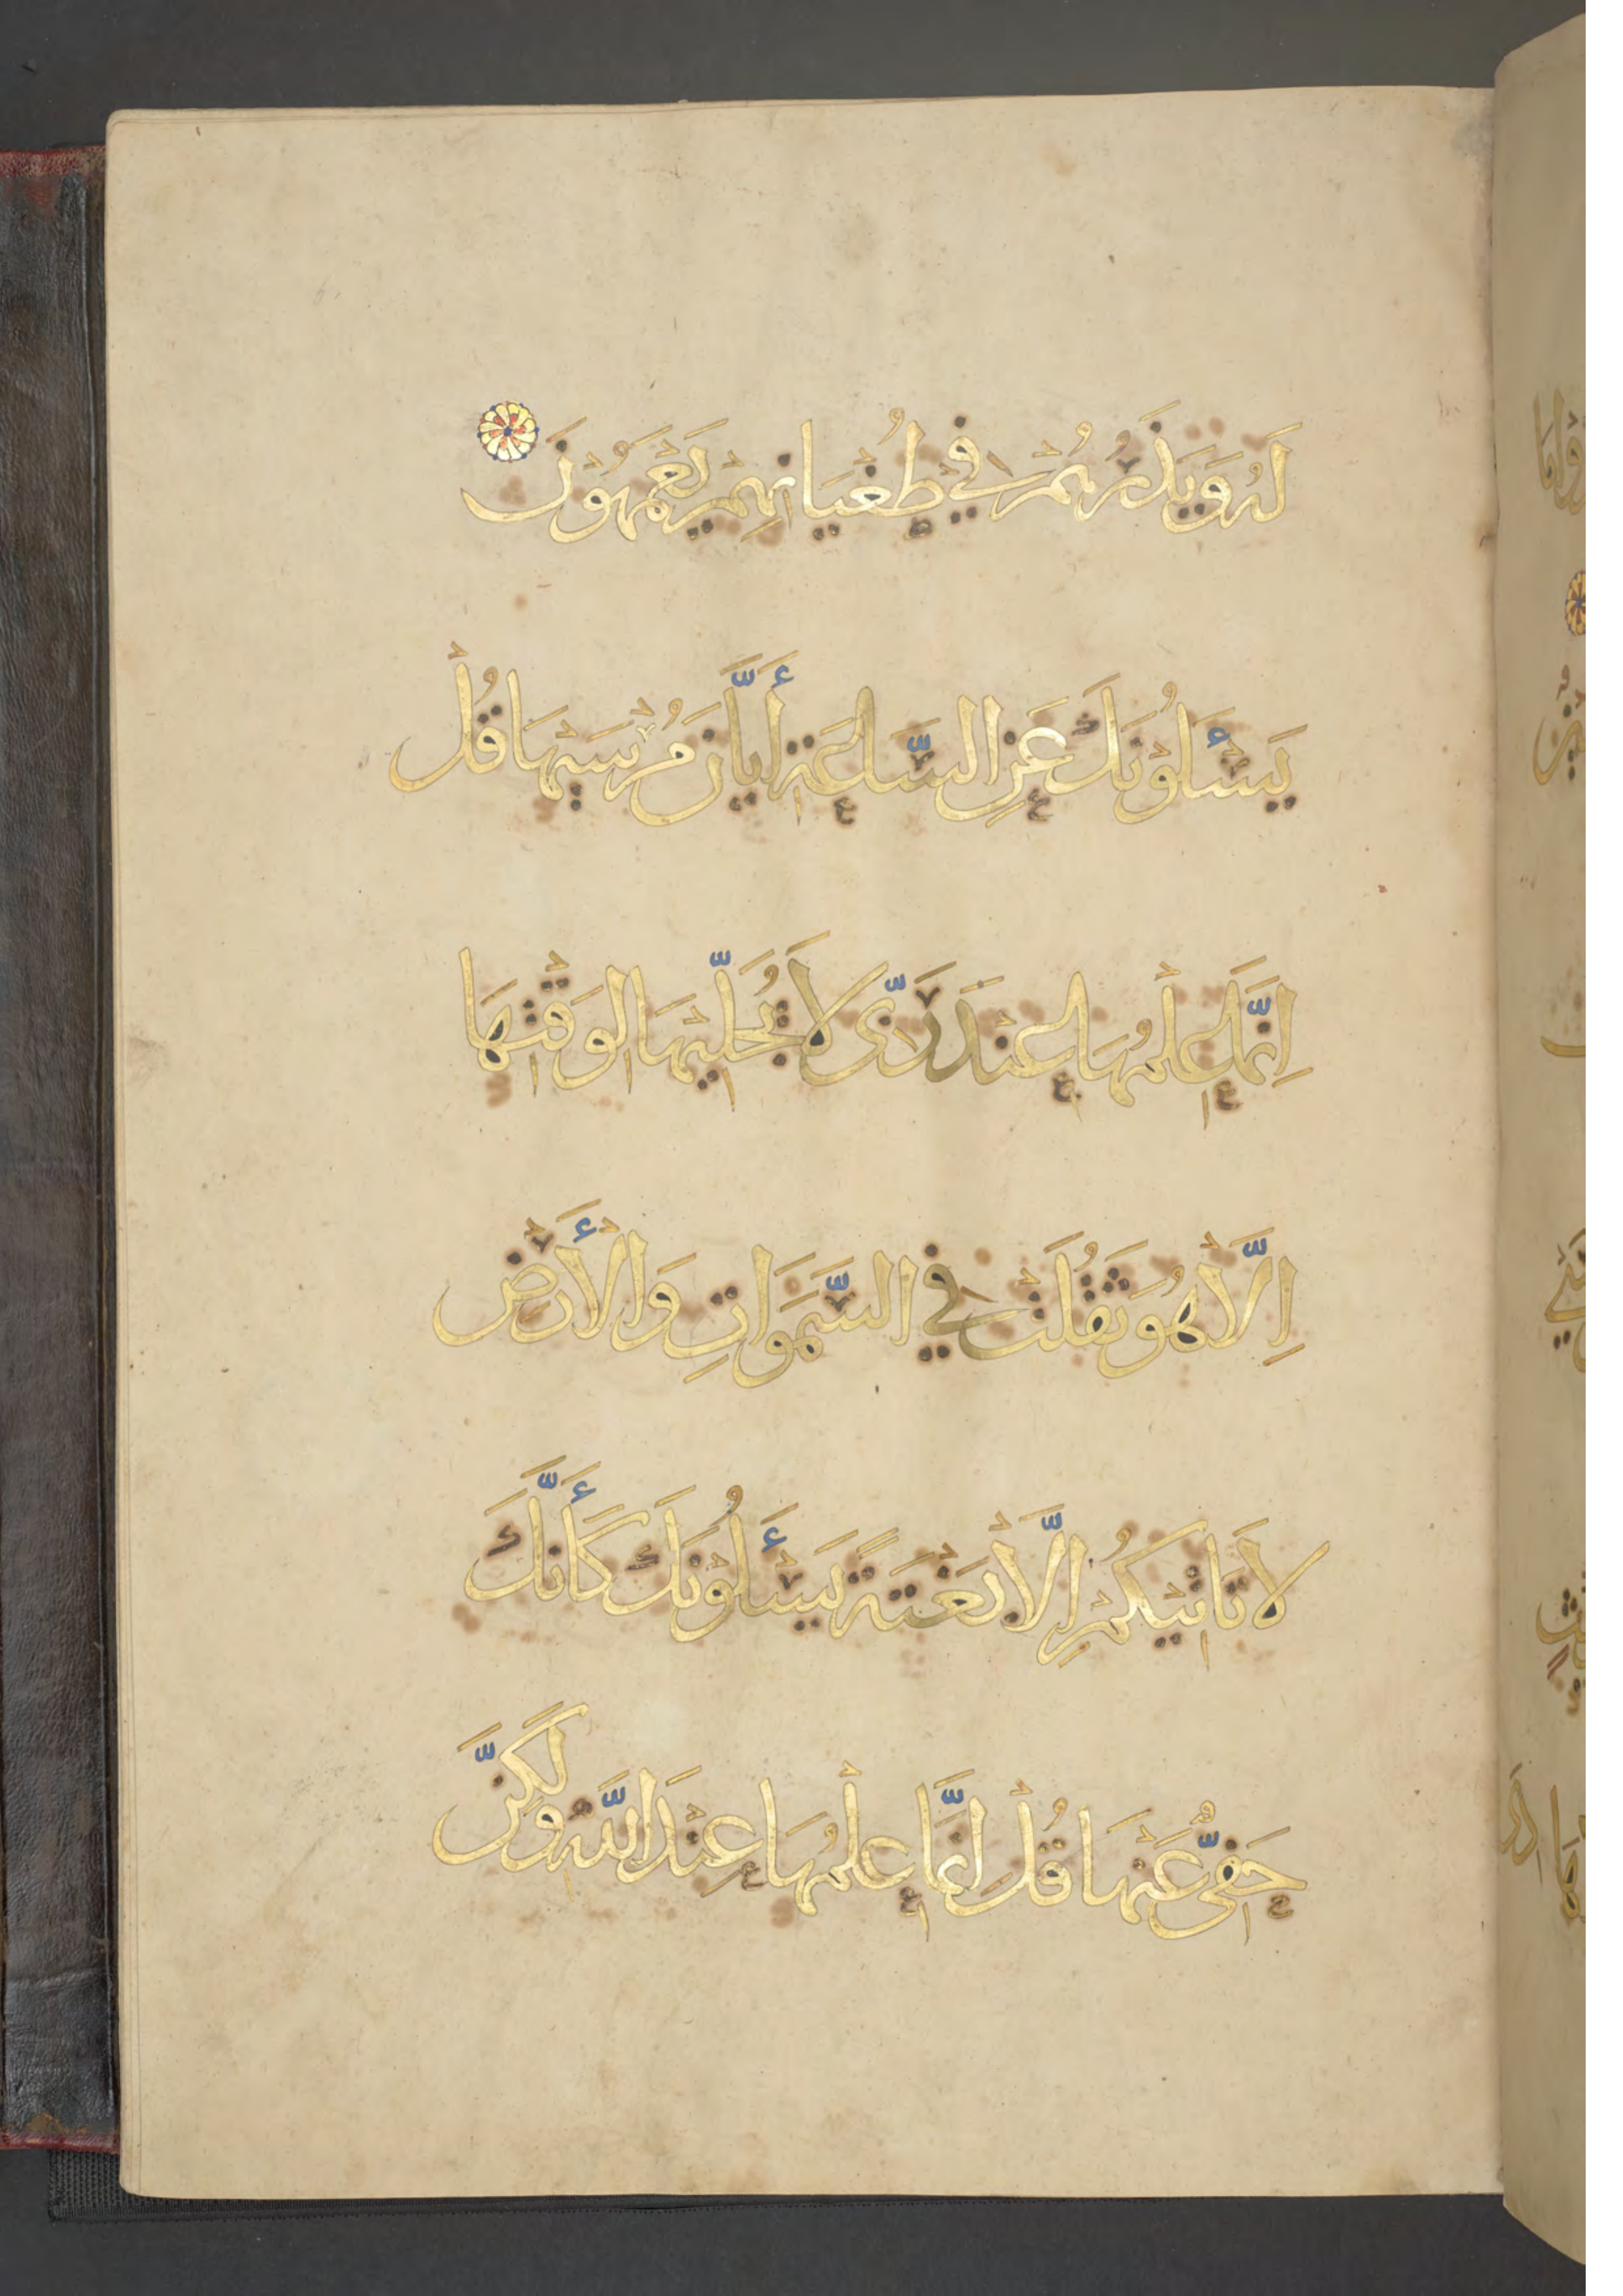 لَهُ وَيَذَرُهُمْ فِي طُغْيَانِهِمْ يَعْمَهُونَ
يَسْئَلُوْنَكَ عَنِ السَّاعَةِ أَيَّانَ مُرْسَيٰهَا قُلْ
اِنَّمَا عِلْمُهَا عِنْدَ رَبِّى لَا يُجَلِّيْهَا لِوَقْتِهَا
اِلَّا هُوَ ثَقُلَتْ فِي السَّمَوَاتِ وَالْأَرْضِ
لَا تَاتِيْكُمْ اِلَّا بَغْتَةً يَسْئَلُوْنَكَ كَأَنَّكَ
حَفِىٌّ عَنْهَا قُلْ اِنَّمَا عِلْمُهَا عِنْدَ اللَّهِ وَلَكِنَّ